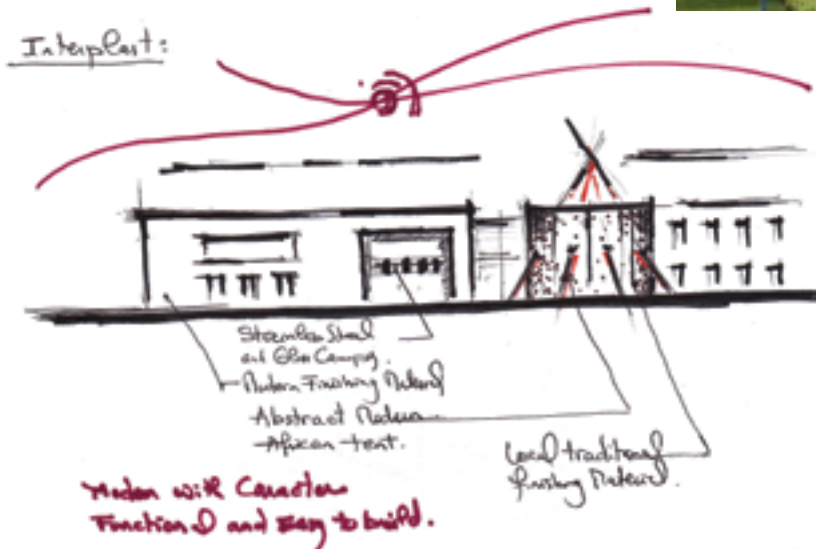 Interplast:
Stainless Steel
and Glass Canopy.
Modern Finishing Material
Abstract Modern
African tent.
Local traditional
finishing Material.
Modern with Character
Functional and Easy to build.